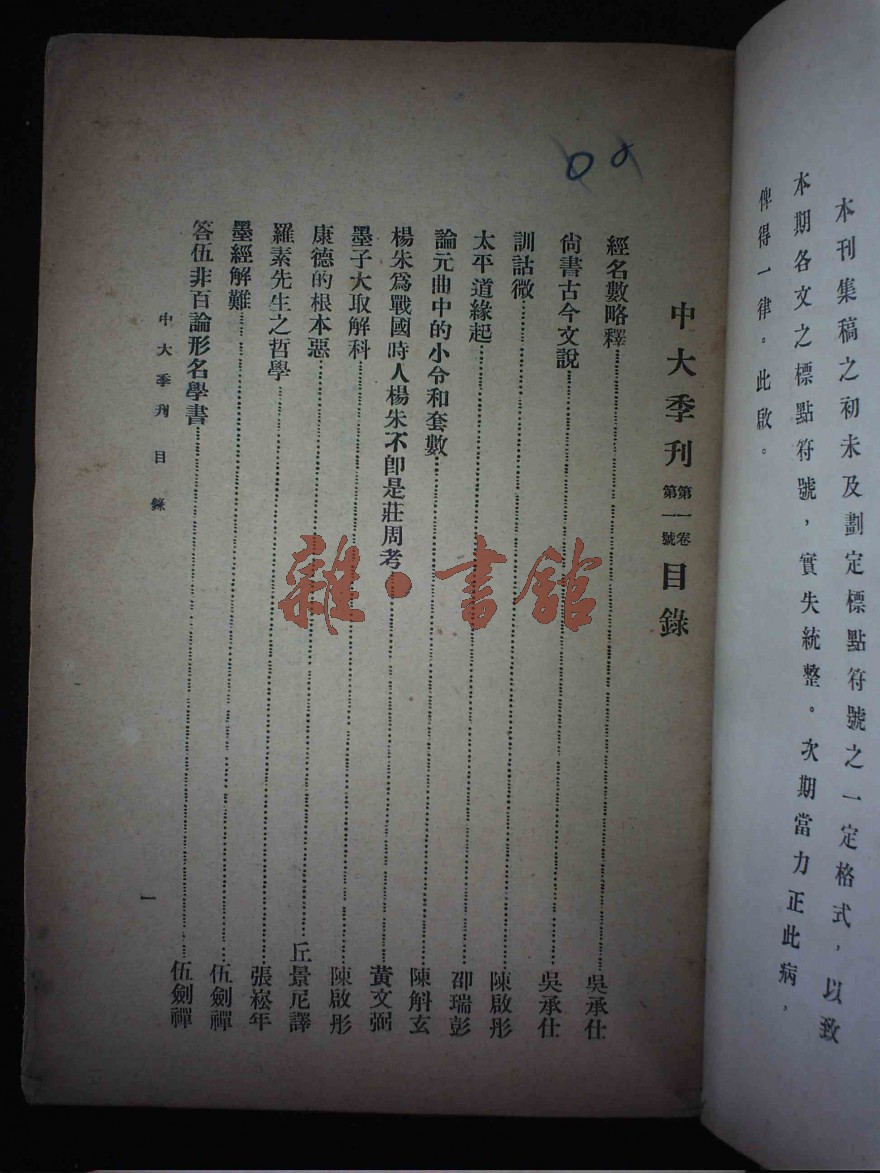 本刊集稿之初未及劃定標點符號之一定格式，以致
本期各文之標點符號，實失統整。次期當力正此病，
俾得一律。此啟。
中大季刊 第一卷 第一號 目錄
經名數略釋……吳承仕
尚書古今文說……吳承仕
訓詁微……陳啟彤
太平道緣起……邵瑞彭
論元曲中的小令和套數……陳斛玄
楊朱爲戰國時人楊朱不卽是莊周考……黃文弼
墨子大取解科……陳啟彤
康德的根本惡……丘景尼譯
羅素先生之哲學……張崧年
墨經解難……伍劍禪
答伍非百論形名學書……伍劍禪
中大季刊 目錄
一
雜·書館